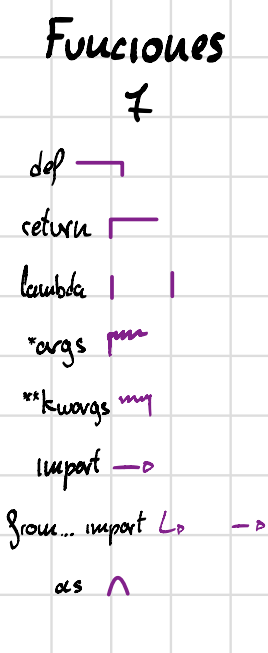 Funciones
7
def
return
lambda
*args
**kwargs
import
from... import
as